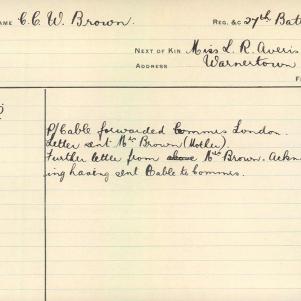 NAME C. C. W. Brown.
REG. &C 27th Bat
NEXT OF KIN Miss L. R. Averis
ADDRESS Warnertown
P/Cable forwarded Commes London.
Letter sent Mrs Brown (Mother)
Further letter from above Mrs Brown. Ackn
ing having sent Cable to Commes.